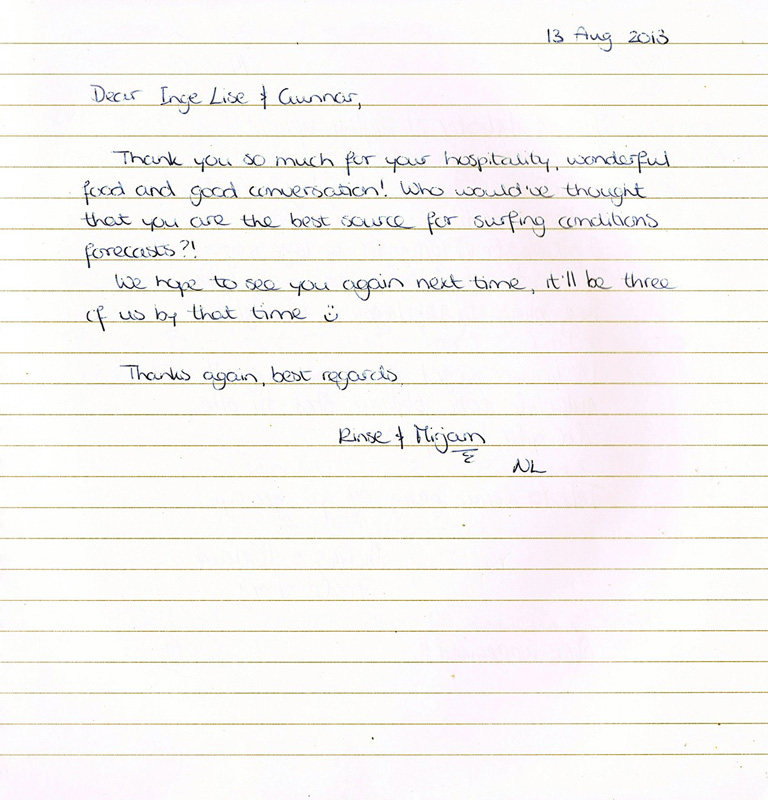 13 Aug 2013
Dear Inge Lise & Gunnar,
Thank you so much for your hospitality, wonderful
food and good conversation! Who would've thought
that you are the best source for surfing conditions
forecasts?!
We hope to see you again next time, it'll be three
of us by that time ☺
Thanks again, best regards,
Rinse & Mirjam
NL